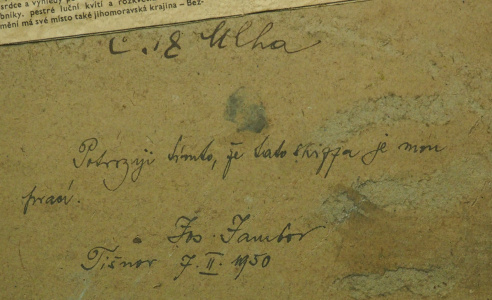 srdce a výhledy
bníky, pestré luční kvítí a rozkvě
mění má své místo také jihomoravská krajina – Bez-
č. 18 Mlha
Potvrzuji tímto, že tato skizza je mou
prací.
Jos. Jambor
Tišnov 7. II. 1950